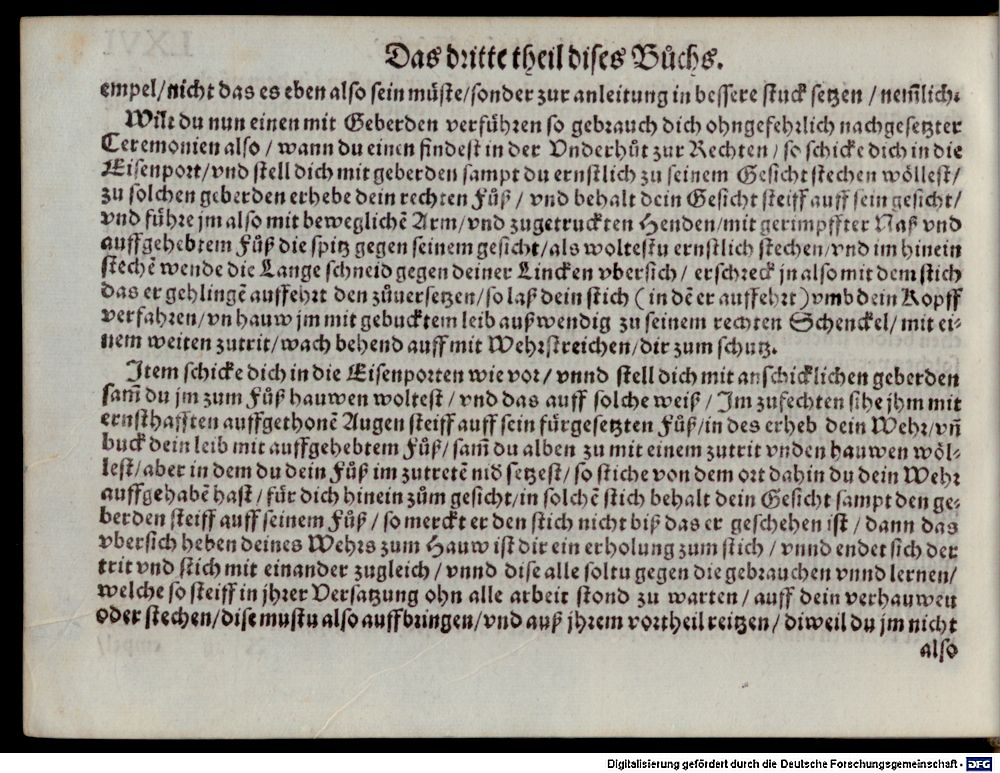 Das dritte theil dises Bůchs.
empel/nicht das es eben also sein můste/sonder zur anleitung in bessere stuck setzen / nem̃lich.
Wilt du nun einen mit Geberden verführen so gebrauch dich ohngefehrlich nachgesetzter
Ceremonien also / wann du einen findest in der Vnderhůt zur Rechten / so schicke dich in die
Eisenport/vnd stell dich mit geberden sampt du ernstlich zu seinem Gesicht stechen wöllest/
zu solchen geberden erhebe dein rechten Fůß / vnd behalt dein Gesicht steiff auff sein gesicht/
vnd führe jm also mit beweglichẽ Arm/vnd zugetruckten Henden/mit gerimpffter Naß vnd
auffgehebtem Fůß die spitz gegen seinem gesicht/als woltestu ernstlich stechen/vnd im hinein
stechẽ wende die Lange schneid gegen deiner Lincken vbersich / erschreck jn also mit dem stich
das er gehlingẽ auffehrt den zůuersetzen/so laß dein stich ( in dẽ er auffehrt ) vmb dein Kopff
verfahren/vn hauw jm mit gebucktem leib außwendig zu seinem rechten Schenckel/ mit ei⸗
nem weiten zutrit/wach behend auff mit Wehrstreichen/dir zum schutz.
Item schicke dich in die Eisenporten wie vor/ vnnd stell dich mit anschicklichen geberden
sam̃ du jm zum Fůß hauwen woltest / vnd das auff solche weiß / Im zufechten sihe jhm mit
ernsthafften auffgethonẽ Augen steiff auff sein fürgesetzten Fůß/in des erheb dein Wehr/vñ
buck dein leib mit auffgehebtem Fůß/ sam̃ du alben zu mit einem zutrit vnden hauwen wöl⸗
lest/aber in dem du dein Fůß im zutretẽ nid setzest/ so stiche von dem ort dahin du dein Wehr
auffgehabẽ hast / für dich hinein zům gesicht/in solchẽ stich behalt dein Gesicht sampt den ge⸗
berden steiff auff seinem Fůß / so merckt er den stich nicht biß das er geschehen ist / dann das
vbersich heben deines Wehrs zum Hauw ist dir ein erholung zum stich / vnnd endet sich der
trit vnd stich mit einander zugleich / vnnd dise alle soltu gegen die gebrauchen vnnd lernen/
welche so steiff in jhrer Versatzung ohn alle arbeit stond zu warten / auff dein verhauwen
oder stechen/dise mustu also auffbringen/vnd auß jhrem vortheil reitzen / diweil du jm nicht
also
Digitalisierung gefördert durch die Deutsche Forschungsgemeinschaft - DFG